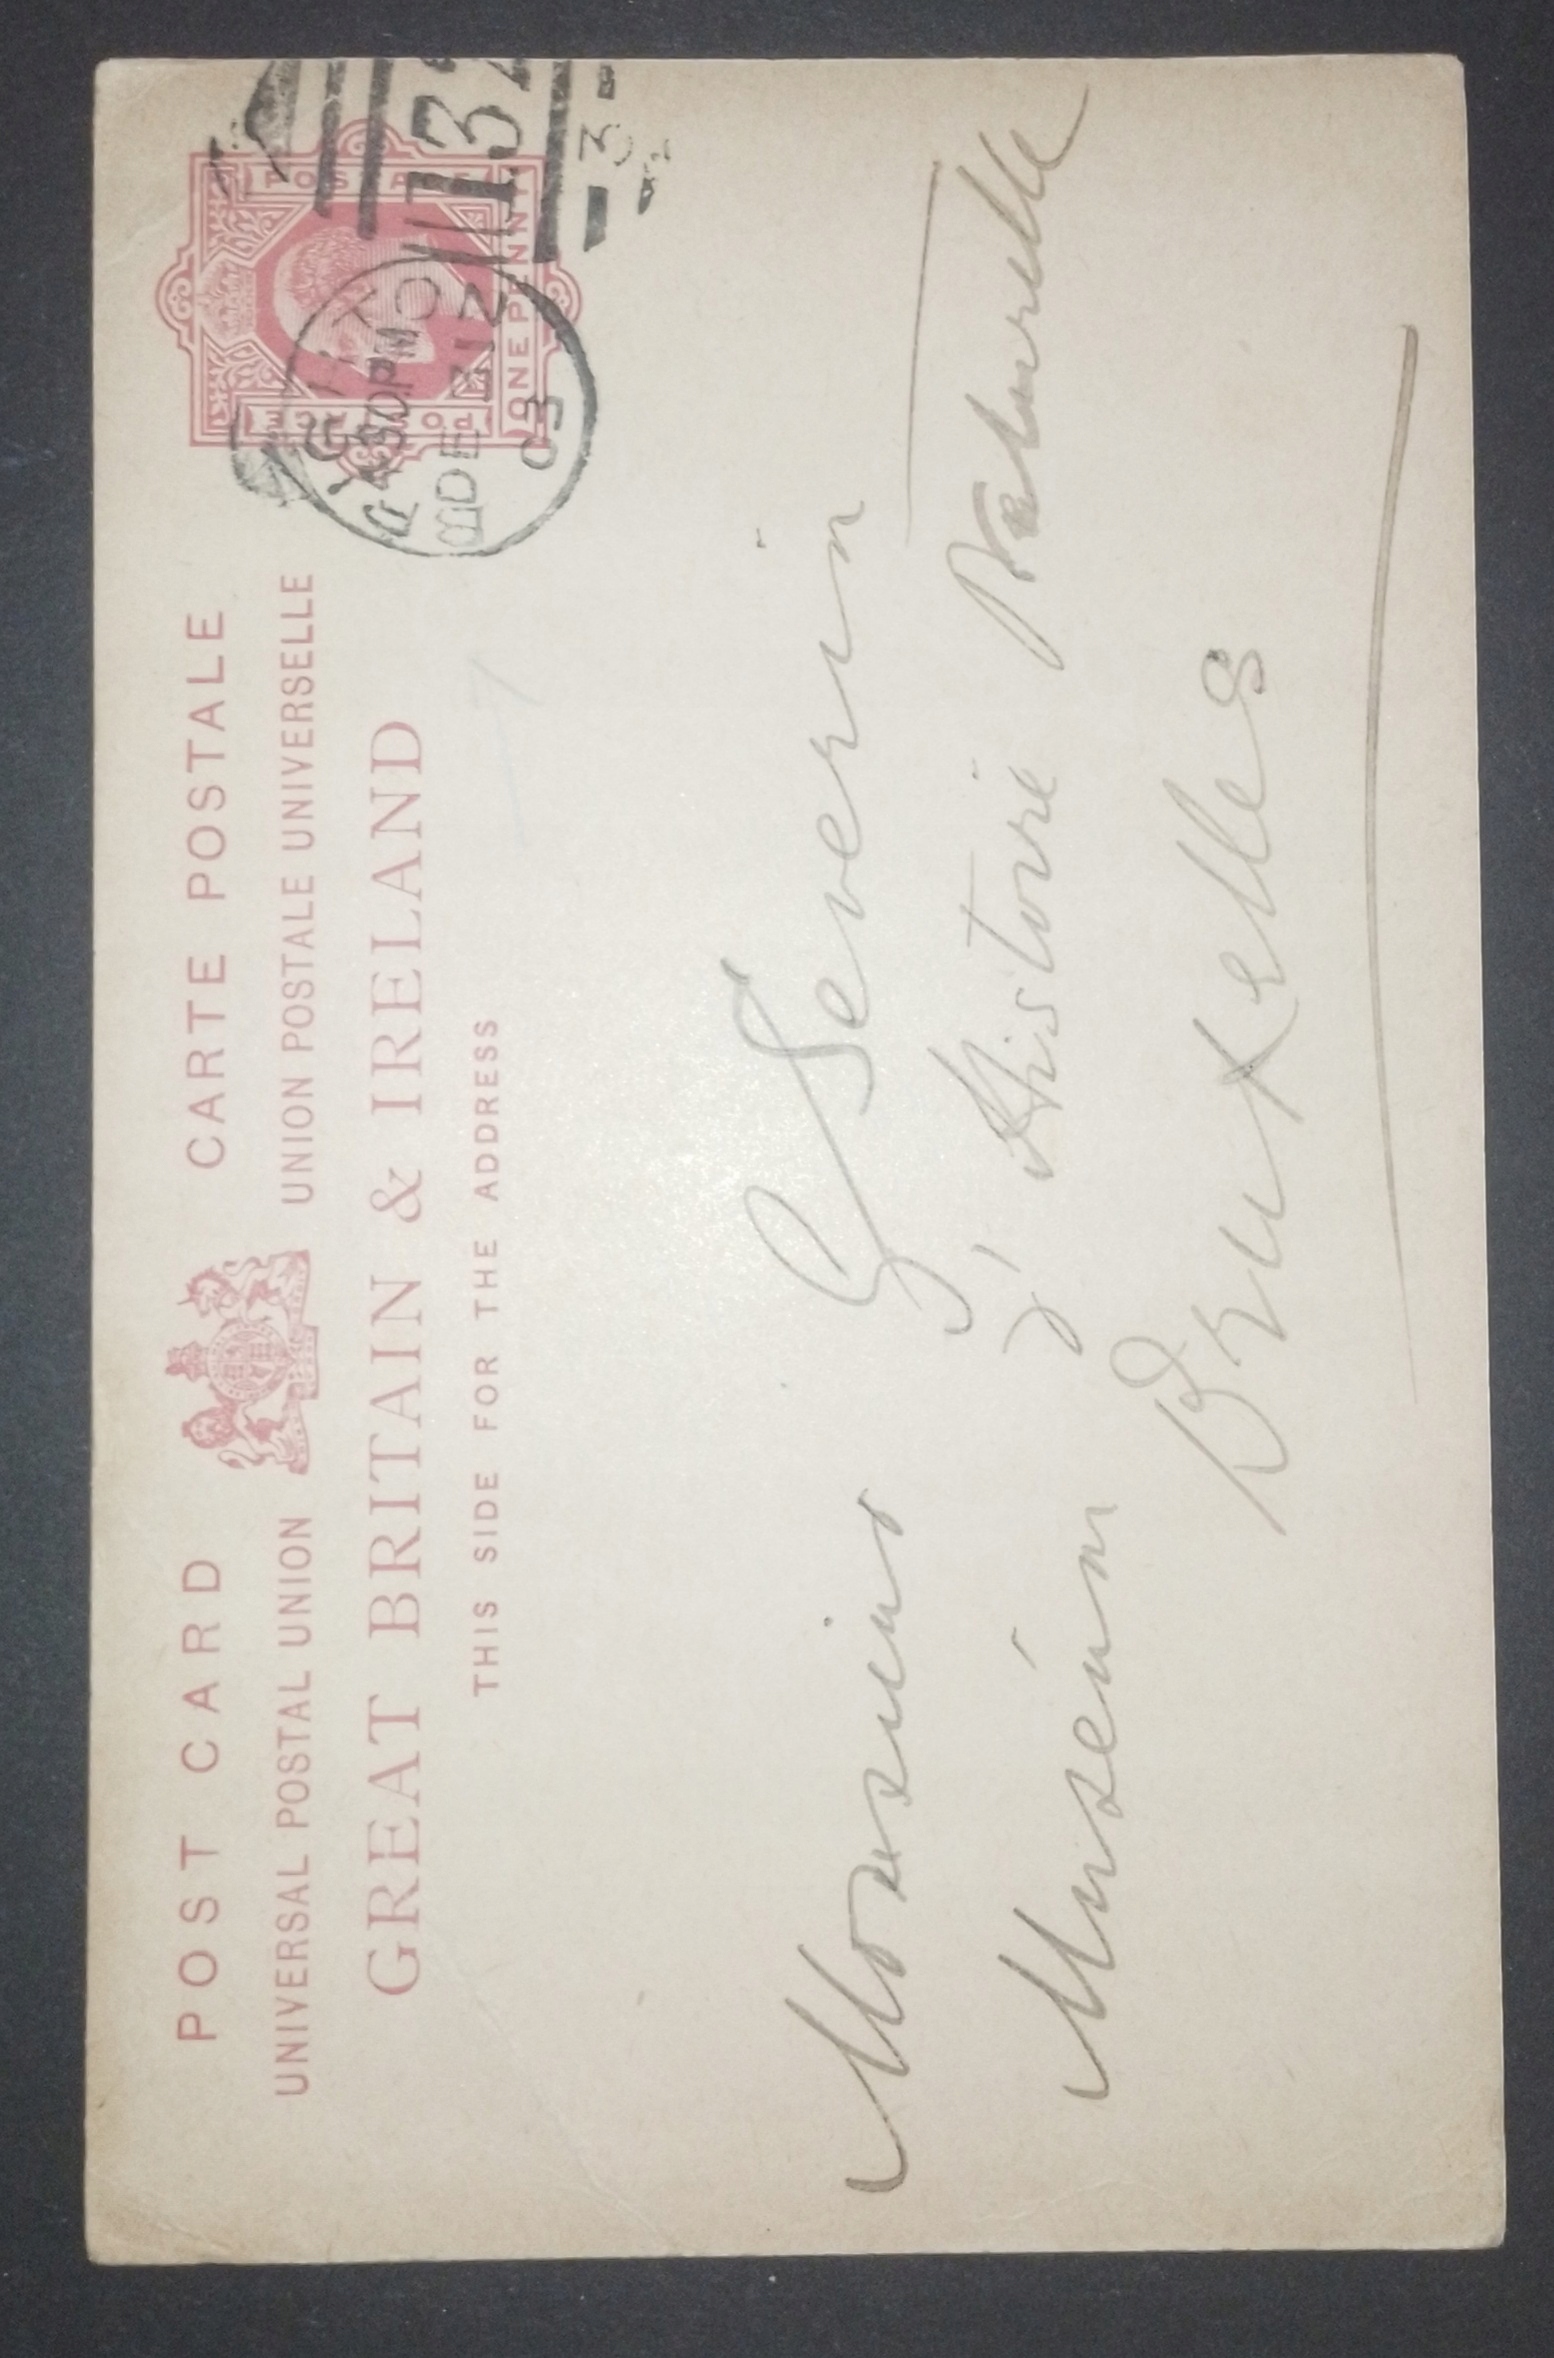 POST CARD CARTE POSTALE
UNIVERSAL POSTAL UNION UNION POSTALE UNIVERSELLE
GREAT BRITAIN & IRELAND
THIS SIDE FOR THE ADDRESS
POSTAGE
ONE PENNY
132
3
4.30PM
DE 31
03
Monsieur G Severin
Muséum d'Histoire Naturelle
Bruxelles